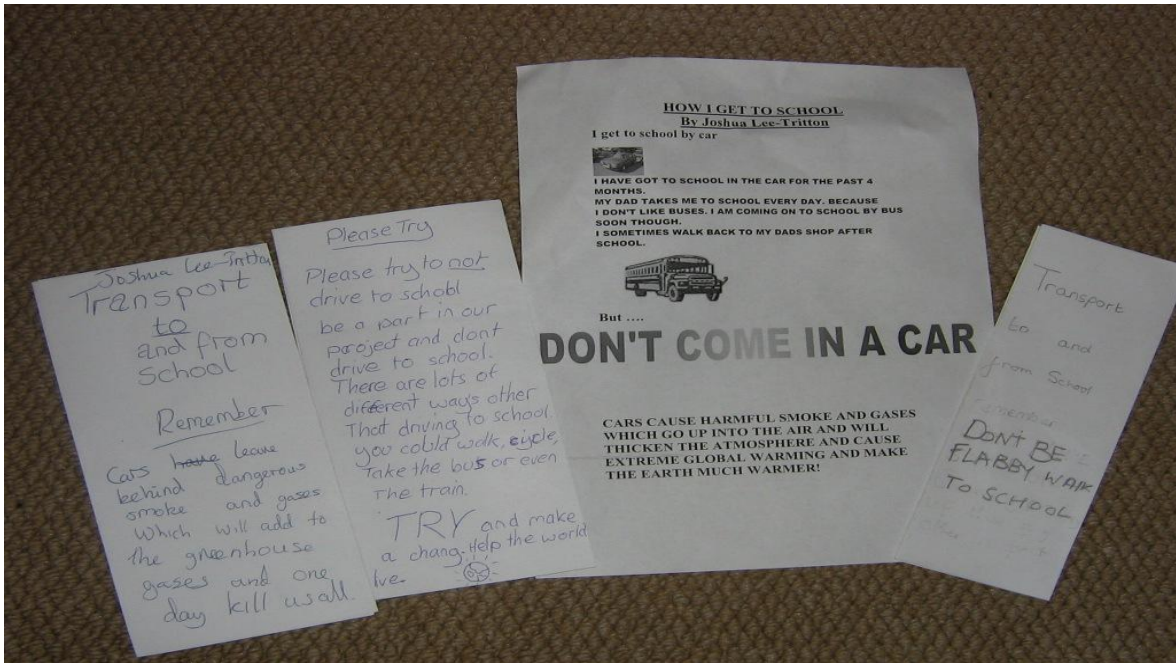 Joshua Lee-Tritton
Transport
to
and from
School
Remember
Cars have leave
behind dangerous
smoke and gases
which will add to
the greenhouse
gases and one
day kill us all.
Please Try
Please try to not
drive to school
be a part in our
project and dont
drive to school.
There are lots of
different ways other
That driving to school.
you could walk, cycle,
Take the bus or even
The train.
TRY and make
a chang. Help the world
HOW I GET TO SCHOOL
By Joshua Lee-Tritton
I get to school by car
I HAVE GOT TO SCHOOL IN THE CAR FOR THE PAST 4
MONTHS.
MY DAD TAKES ME TO SCHOOL EVERY DAY. BECAUSE
I DON'T LIKE BUSES. I AM COMING ON TO SCHOOL BY BUS
SOON THOUGH.
I SOMETIMES WALK BACK TO MY DADS SHOP AFTER
SCHOOL.
But ....
DON'T COME IN A CAR
CARS CAUSE HARMFUL SMOKE AND GASES
WHICH GO UP INTO THE AIR AND WILL
THICKEN THE ATMOSPHERE AND CAUSE
EXTREME GLOBAL WARMING AND MAKE
THE EARTH MUCH WARMER!
Transport
to and
from School
remember
DON'T BE
FLABBY WALK
TO SCHOOL